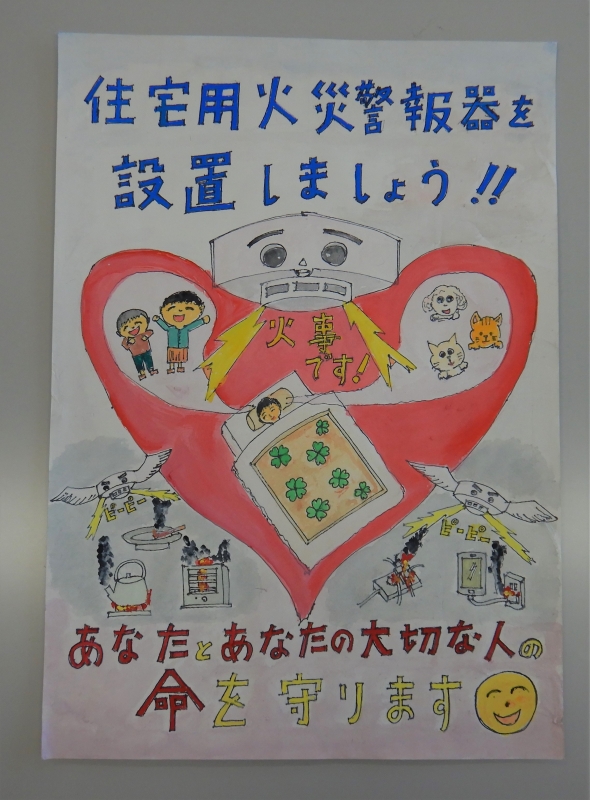 住宅用火災警報器を
設置しましょう!!
火事
です!
ピーピー
ピーピー
あなたとあなたの大切な人の
命を守ります